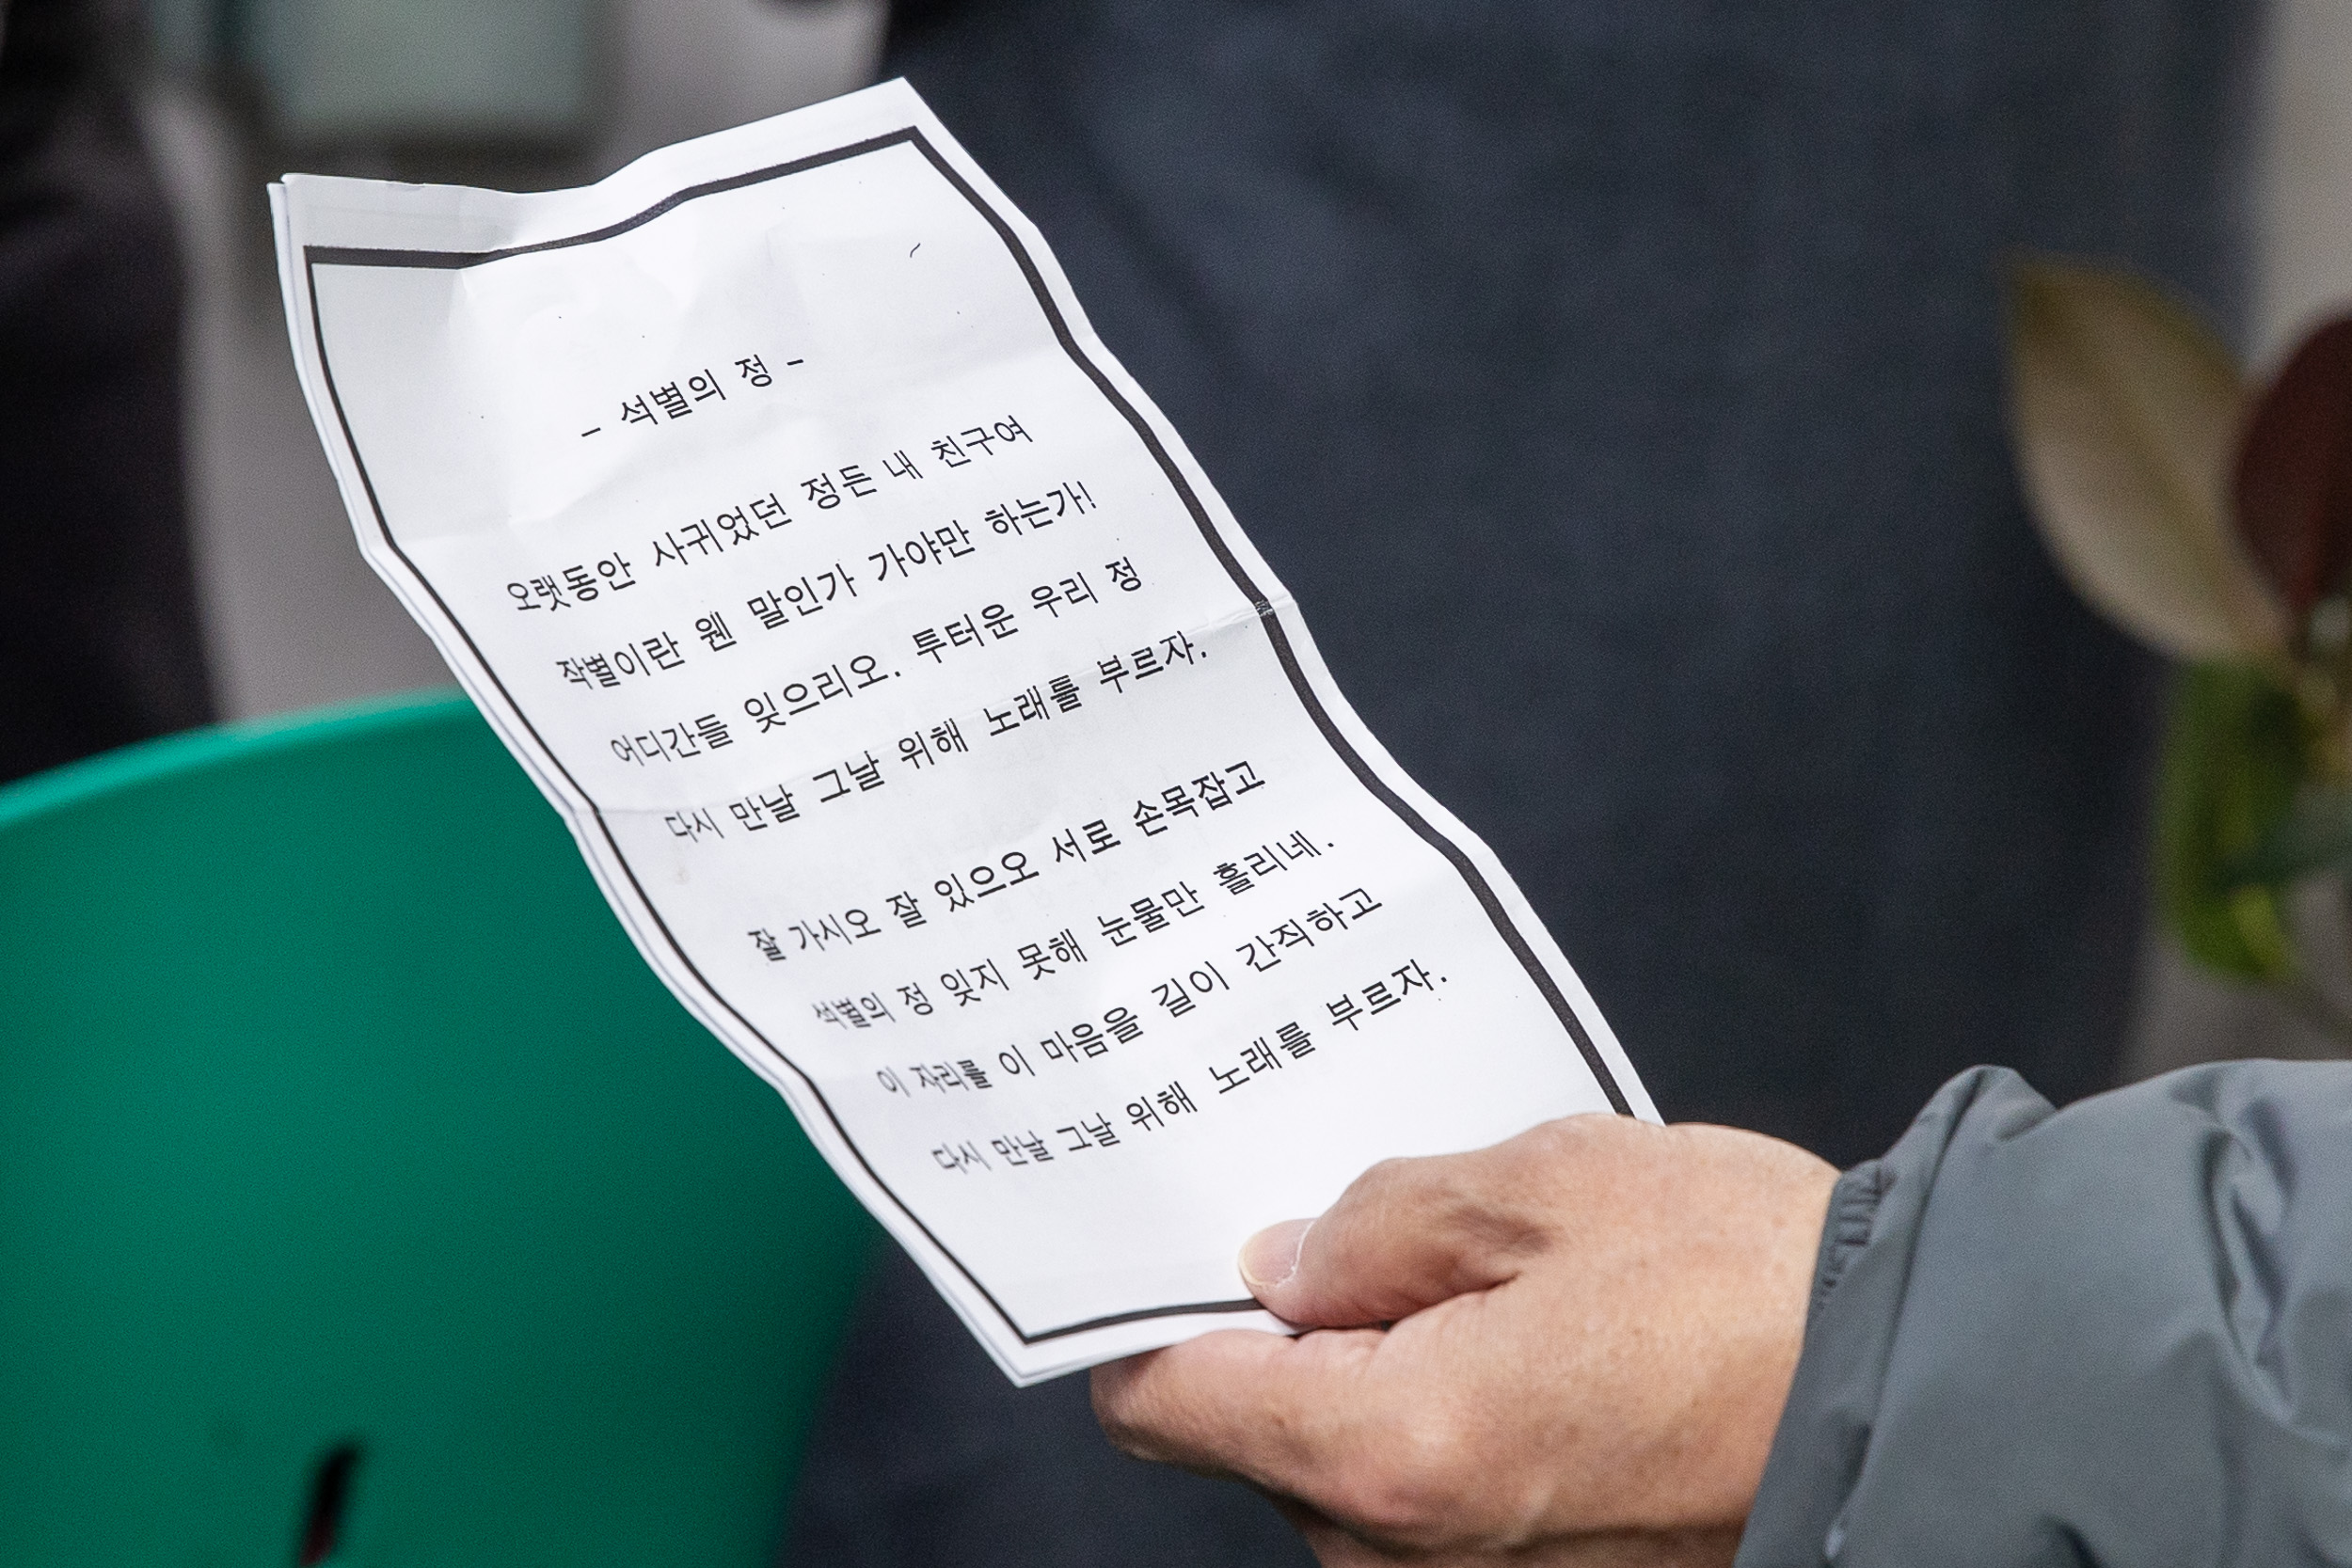 - 석별의 정 -
오랫동안 사귀었던 정든 내 친구여
작별이란 웬 말인가 가야만 하는가!
어디간들 잊으리오. 투터운 우리 정
다시 만날 그날 위해 노래를 부르자.
잘 가시오 잘 있으오 서로 손목잡고
석별의 정 잊지 못해 눈물만 흘리네.
이 자리를 이 마음을 길이 간직하고
다시 만날 그날 위해 노래를 부르자.